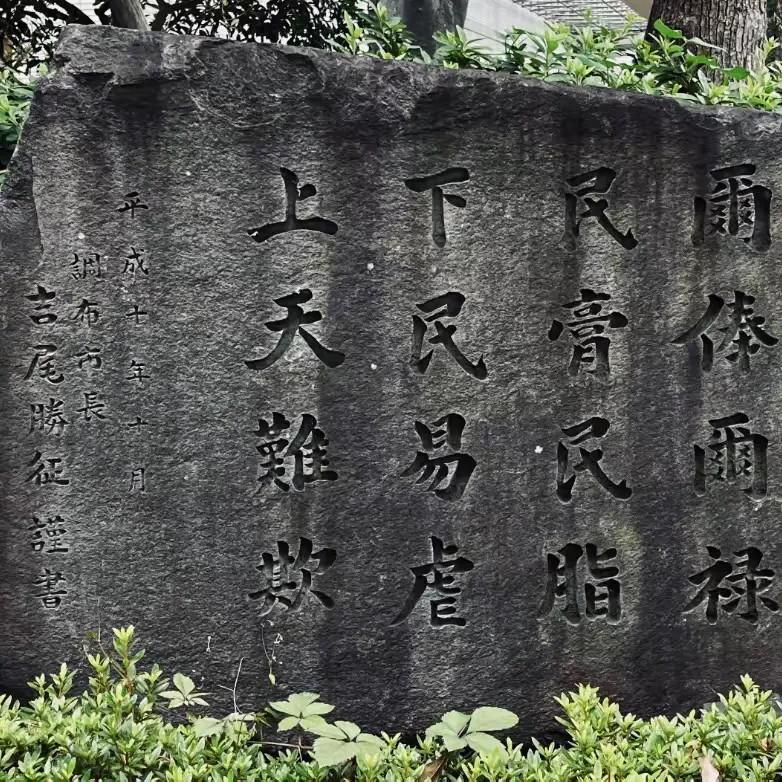 爾俸爾禄
民膏民脂
下民易虐
上天難欺
平成十年十月
調布市長
吉尾勝征謹書